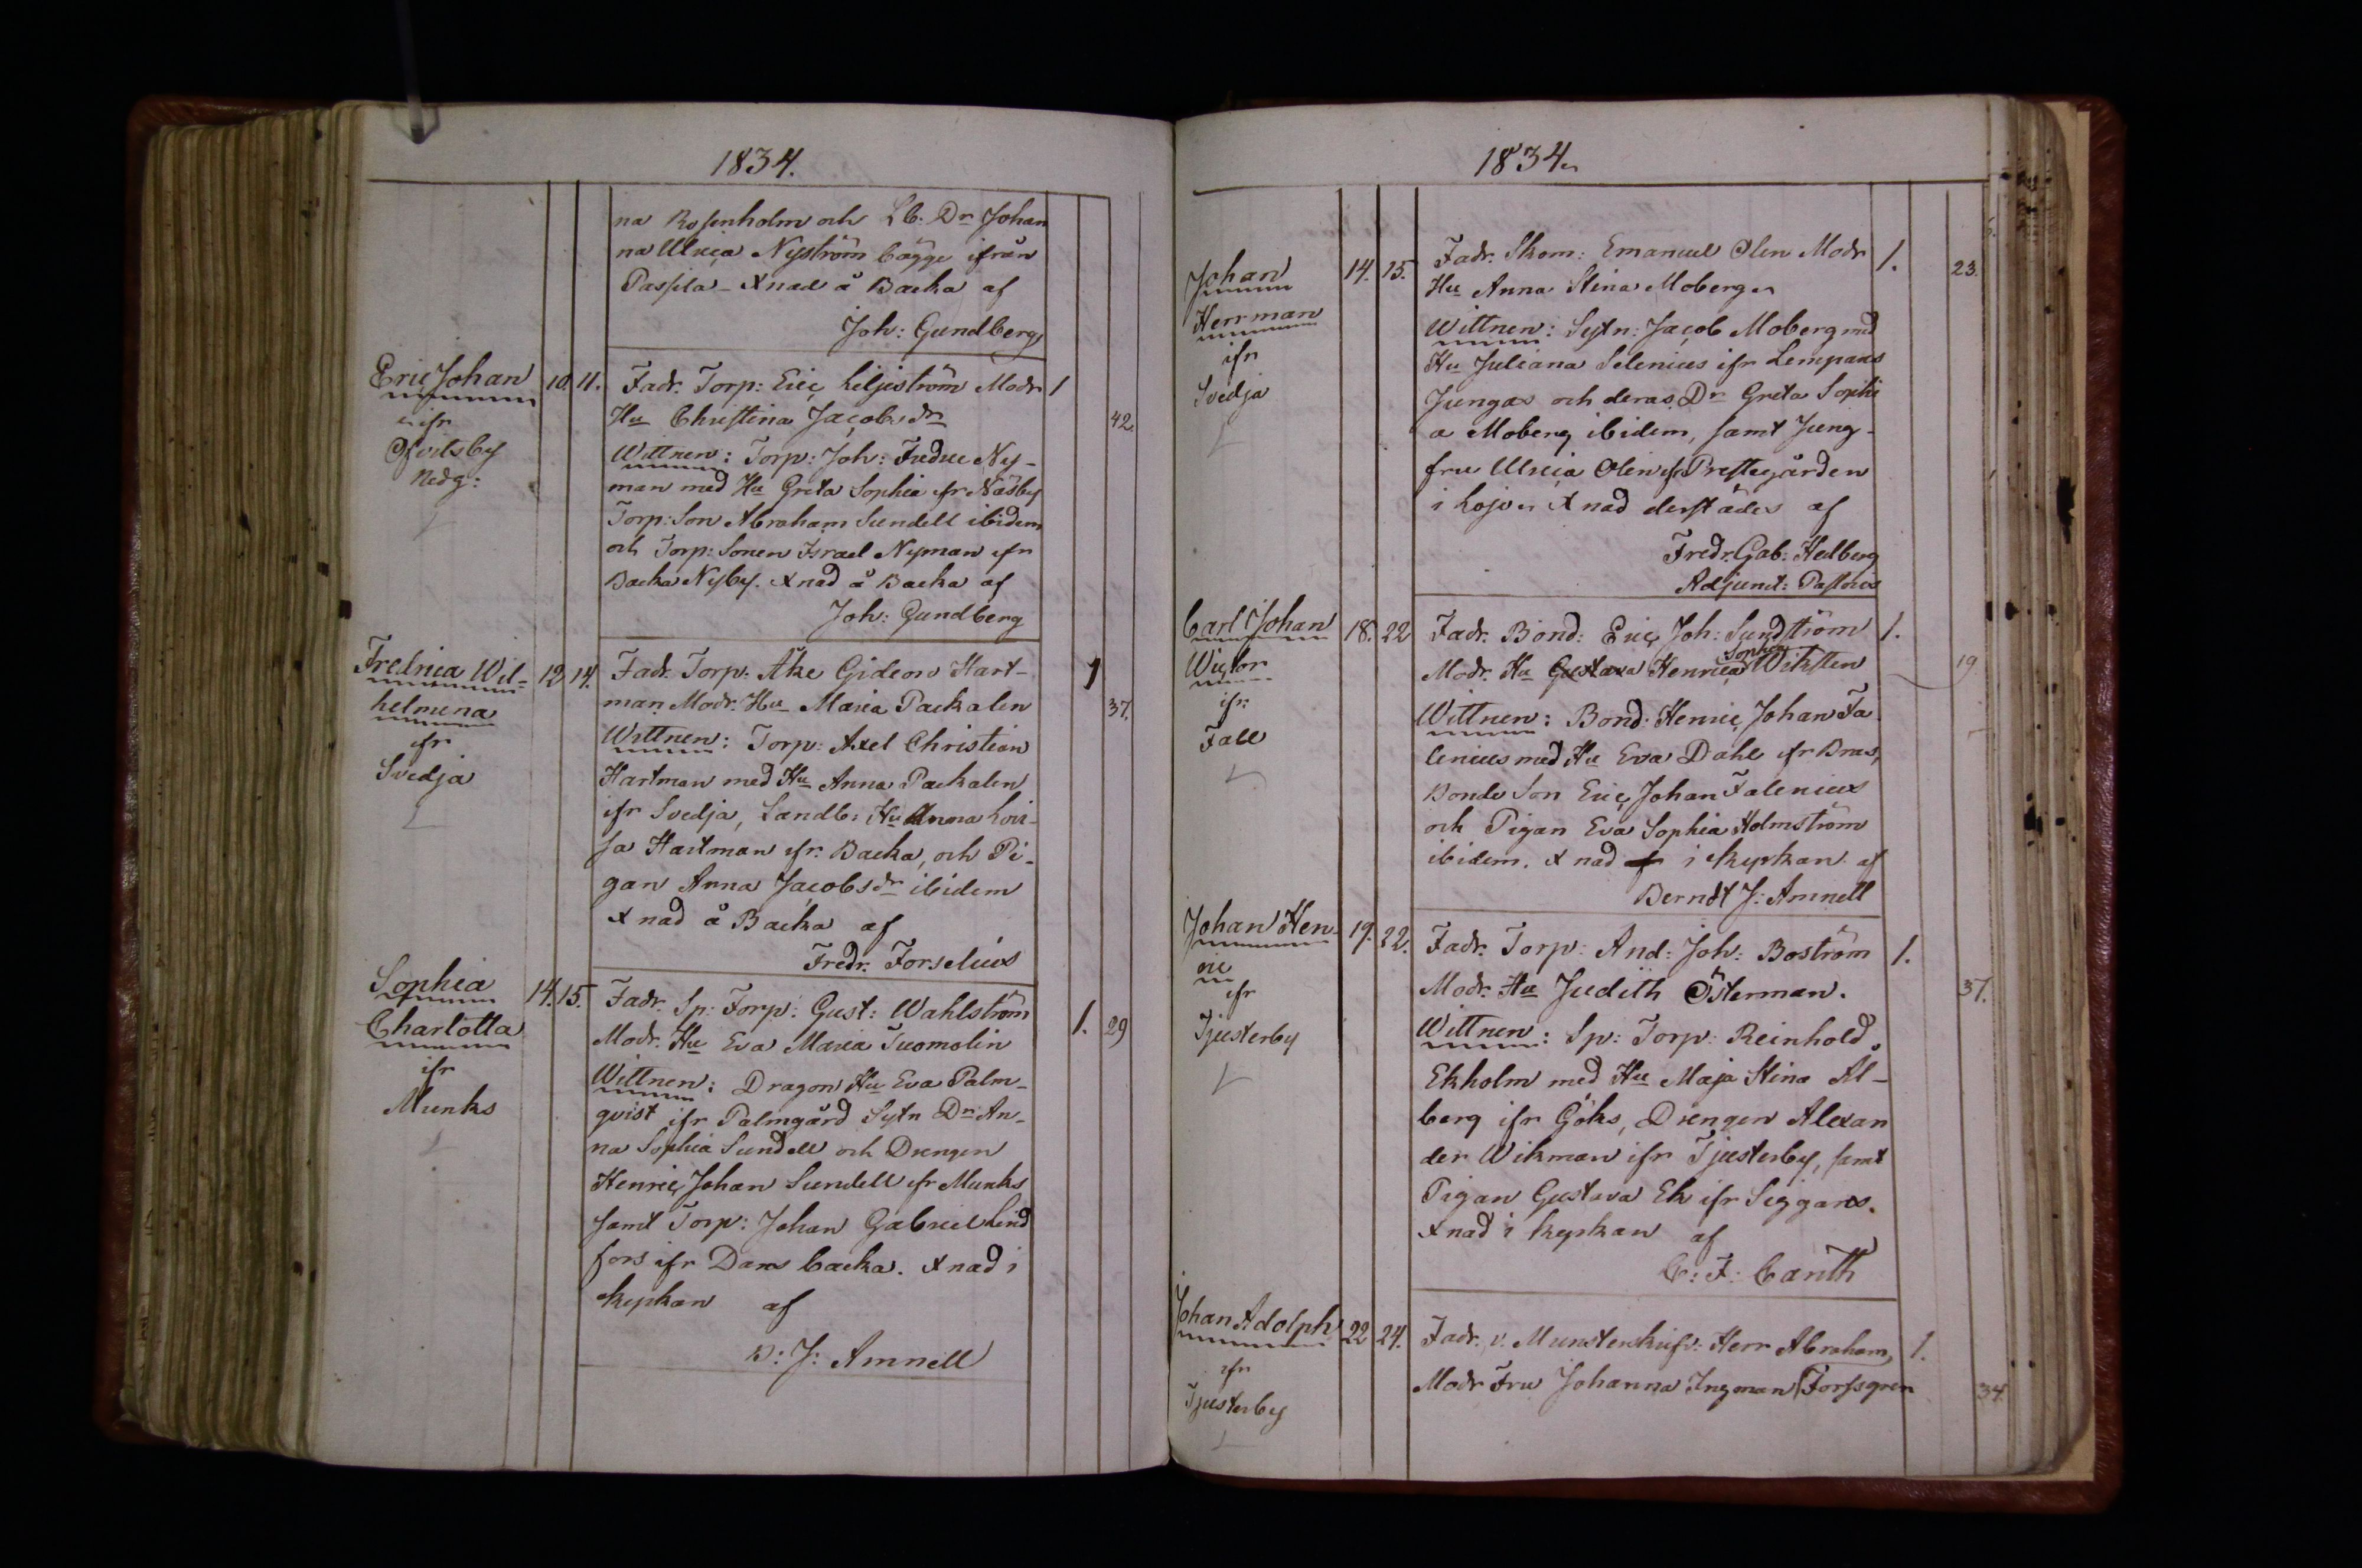 1834.
na Rosenholm och Lb. Dr Johan
na Ulrica Nyström bägge ifrån
Passila - Xnad å Backa af
Joh: Gundberg
Eric Johan 10. 11. Fadr. Torp: Eric Liljeström Modr 1
ifr Hu Christina Jacobsdr 42.
Ofvitsby Wittnen: Torp: Joh: Fredric Ny-
Nedg: man med Hu Greta Sophia ifr Näsby
Torp: Son Abraham Sundell ibidem
och Torp: Sonen Israel Nyman ifr
Backa Nyby. Xnad å Backa af
Joh: Gundberg
Fredrica Wil- 12 14. Fadr. Torp: Åke Gideon Hart- 1
helmina man Modr. Hu Maria Packalen 37.
ifr Wittnen: Torp: Axel Christian
Svedja Hartman med Hu Anna Packalen
ifr Svedja, Landb: Hu Anna Lovi-
sa Hartman ifr. Backa, och Pi-
gan Anna Jacobsdr ibidem
Xnad å Backa af
Fredr. Forselius
Sophia 14. 15. Fadr. Sp: Torp: Gust: Wahlström
Charlotta Modr. Hu Eva Maria Tuomolin 1. 29
ifr Wittnen: Dragon Hu Eva Palm-
Munks qvist ifr Palmgård Sytn Dr An-
na Sophia Sundell och Drengen
Henric Johan Sundell ifr Munks
samt Torp: Johan Gabriel Lind
fors ifr Dans backa. Xnad i
kyrkan af
B: J: Amnell
1834.
Johan 14. 15. Fadr. Skom: Emanuel Olen Modr 1. 23.
Herrman Hu Anna Stina Moberg
ifr Wittnen: Sytn: Jacob Moberg med
Svedja Hu Juliana Selenius ifr Lempans
Jungas och deras Dr Greta Sophi
a Moberg ibidem, samt Jung-
fru Ulrica Olen ifr Prestegården
i Lojo. Xnad derstädes af
Fredr. Gab: Hedberg
Adjunct: Pastoris
Carl Johan 18. 22 Fadr. Bond: Eric Joh: Sundström 1.
Sophia
Wictor Modr. Hu Gustava Henrica Wiksten 19
ifr: Wittnen: Bond: Henric Johan Fa
Fall lenius med Hu Eva Dahl ifr Bras,
Bonde Son Eric Johan Falenius
och Pigan Eva Sophia Holmström
ibidem. Xnad i kyrkan af
Berndt J: Amnell
Johan Hen- 19. 22. Fadr. Torp: And: Joh: Boström 1.
ric Modr. Hu Judith Österman. 37.
ifr Wittnen: Sp: Torp: Reinhold
Tjusterby Ekholm med Hu Maja Stina Al-
berg ifr Göks, Drengen Alexan
der Wikman ifr Tjusterby, samt
Pigan Gustava Ek ifr Siggans.
Xnad i kyrkan af
C: F: Canth
Johan Adolph 22 24. Fadr. v. Munsterskrifv: Herr Abraham, 1.
ifr Modr Fru Johanna Ingman Forssgren 34.
Tjusterby